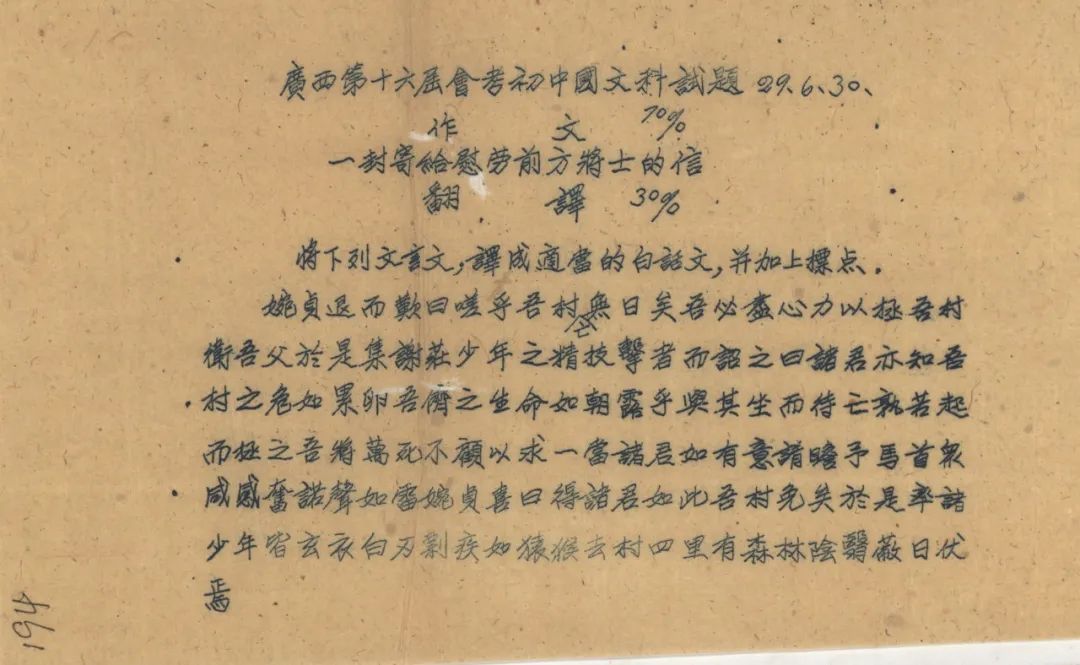 廣西第十六屆會考初中國文科試題 29.6.30.
作 文 70%
一封寄給慰劳前方將士的信
翻 譯 30%
將下列文言文，譯成適當的白話文，并加上標点．
婉貞退而歎曰嗟乎吾村亡無日矣吾必盡心力以拯吾村
衛吾父於是集謝莊少年之精技擊者而詔之曰諸君亦知吾
村之危如累卵吾儕之生命如朝露乎與其坐而待亡孰若起
而拯之吾將萬死不顧以求一當諸君如有意請瞻予馬首衆
咸感奮諾聲如雷婉貞喜曰得諸君如此吾村免矣於是率諸
少年皆玄衣白刃剽疾如猿猴去村四里有森林陰翳蔽日伏
焉
194